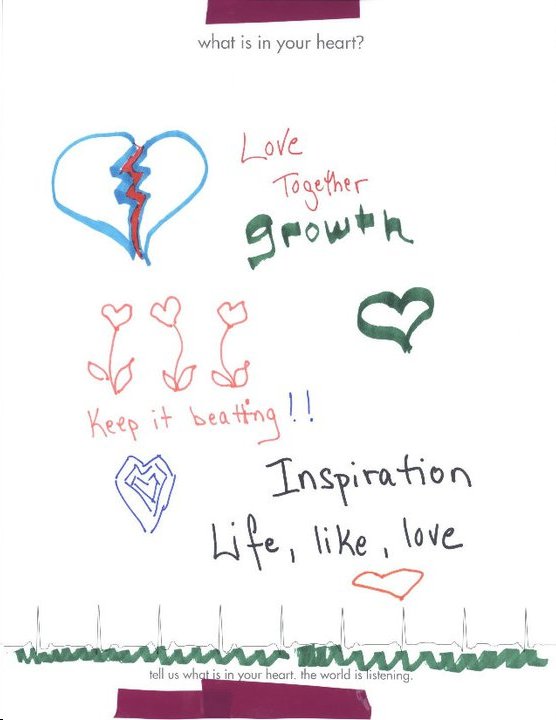 what is in your heart?
Love
Together
growth
Keep it beatting!!
Inspiration
Life, like, love
tell us what is in your heart. the world is listening.